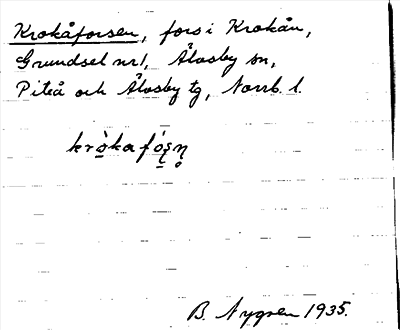 Krokåforsen, fors i Krokån,
Grundsel nr 1, Älvsby sn,
Piteå och Älvsby tg, Norrb. l.
krò̠kafó̠ʂn̥
B. Nygren 1935.